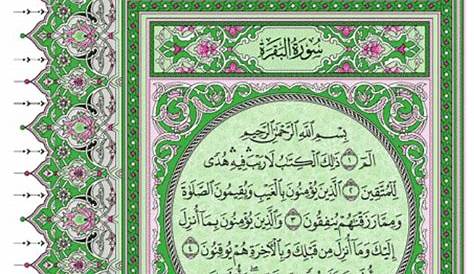 سُورَةُ الْبَقَرَةِ
بِسْمِ ٱللَّهِ ٱلرَّحْمَٰنِ ٱلرَّحِيمِ
الٓمٓ ١ ذَٰلِكَ ٱلْكِتَٰبُ لَا رَيْبَ فِيهِ هُدًى
لِّلْمُتَّقِينَ ٢ ٱلَّذِينَ يُؤْمِنُونَ بِٱلْغَيْبِ وَيُقِيمُونَ ٱلصَّلَوٰةَ
وَمِمَّا رَزَقْنَٰهُمْ يُنفِقُونَ ٣ وَٱلَّذِينَ يُؤْمِنُونَ بِمَآ أُنزِلَ
إِلَيْكَ وَمَآ أُنزِلَ مِن قَبْلِكَ وَبِٱلْءَاخِرَةِ هُمْ يُوقِنُونَ